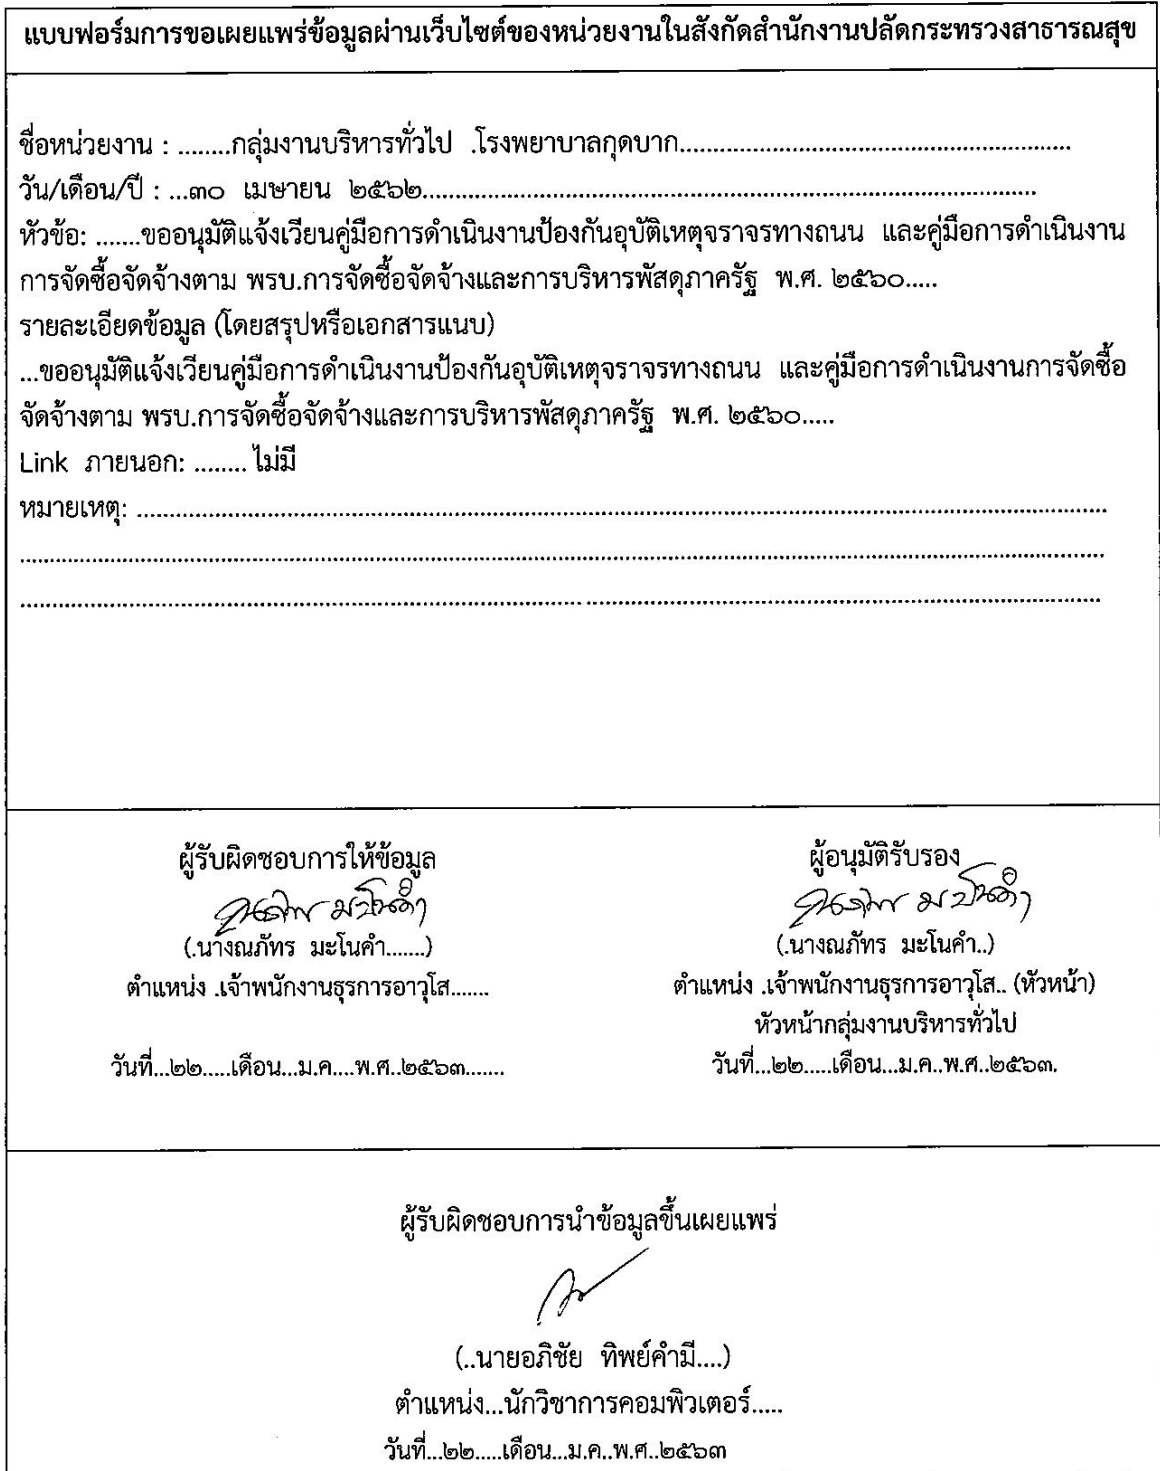 แบบฟอร์มการขอเผยแพร่ข้อมูลผ่านเว็บไซต์ของหน่วยงานในสังกัดสำนักงานปลัดกระทรวงสาธารณสุข
ชื่อหน่วยงาน : ........กลุ่มงานบริหารทั่วไป .โรงพยาบาลกุดบาก............................................................
วัน/เดือน/ปี : ...๓๐ เมษายน ๒๕๖๒...............................................................................................
หัวข้อ: .......ขออนุมัติแจ้งเวียนคู่มือการดำเนินงานป้องกันอุบัติเหตุจราจรทางถนน และคู่มือการดำเนินงาน
การจัดซื้อจัดจ้างตาม พรบ.การจัดซื้อจัดจ้างและการบริหารพัสดุภาครัฐ พ.ศ. ๒๕๖๐.....
รายละเอียดข้อมูล (โดยสรุปหรือเอกสารแนบ)
...ขออนุมัติแจ้งเวียนคู่มือการดำเนินงานป้องกันอุบัติเหตุจราจรทางถนน และคู่มือการดำเนินงานการจัดซื้อ
จัดจ้างตาม พรบ.การจัดซื้อจัดจ้างและการบริหารพัสดุภาครัฐ พ.ศ. ๒๕๖๐.....
Link ภายนอก: ........ ไม่มี
หมายเหตุ: ....................................................................................................................................
ผู้รับผิดชอบการให้ข้อมูล
(.นางณภัทร มะโนคำ.......)
ตำแหน่ง .เจ้าพนักงานธุรการอาวุโส.......
วันที่...๒๒.....เดือน...ม.ค....พ.ศ..๒๕๖๓.......
ผู้อนุมัติรับรอง
(.นางณภัทร มะโนคำ..)
ตำแหน่ง .เจ้าพนักงานธุรการอาวุโส.. (หัวหน้า)
หัวหน้ากลุ่มงานบริหารทั่วไป
วันที่...๒๒.....เดือน...ม.ค..พ.ศ..๒๕๖๓.
ผู้รับผิดชอบการนำข้อมูลขึ้นเผยแพร่
(..นายอภิชัย ทิพย์คำมี....)
ตำแหน่ง...นักวิชาการคอมพิวเตอร์.....
วันที่...๒๒.....เดือน...ม.ค..พ.ศ..๒๕๖๓